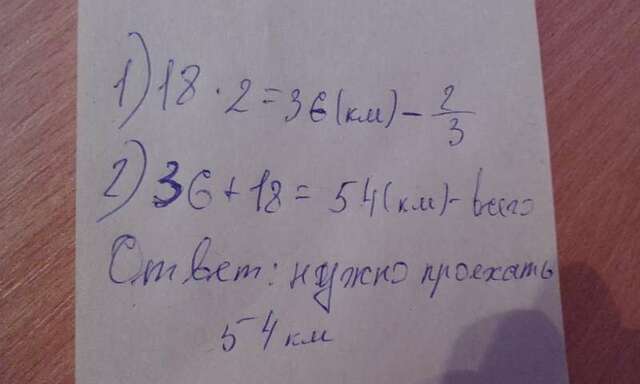 1) 18 · 2 = 36 (км) - 2/3
2) 36 + 18 = 54 (км) - всего
Ответ: нужно проехать
54 км